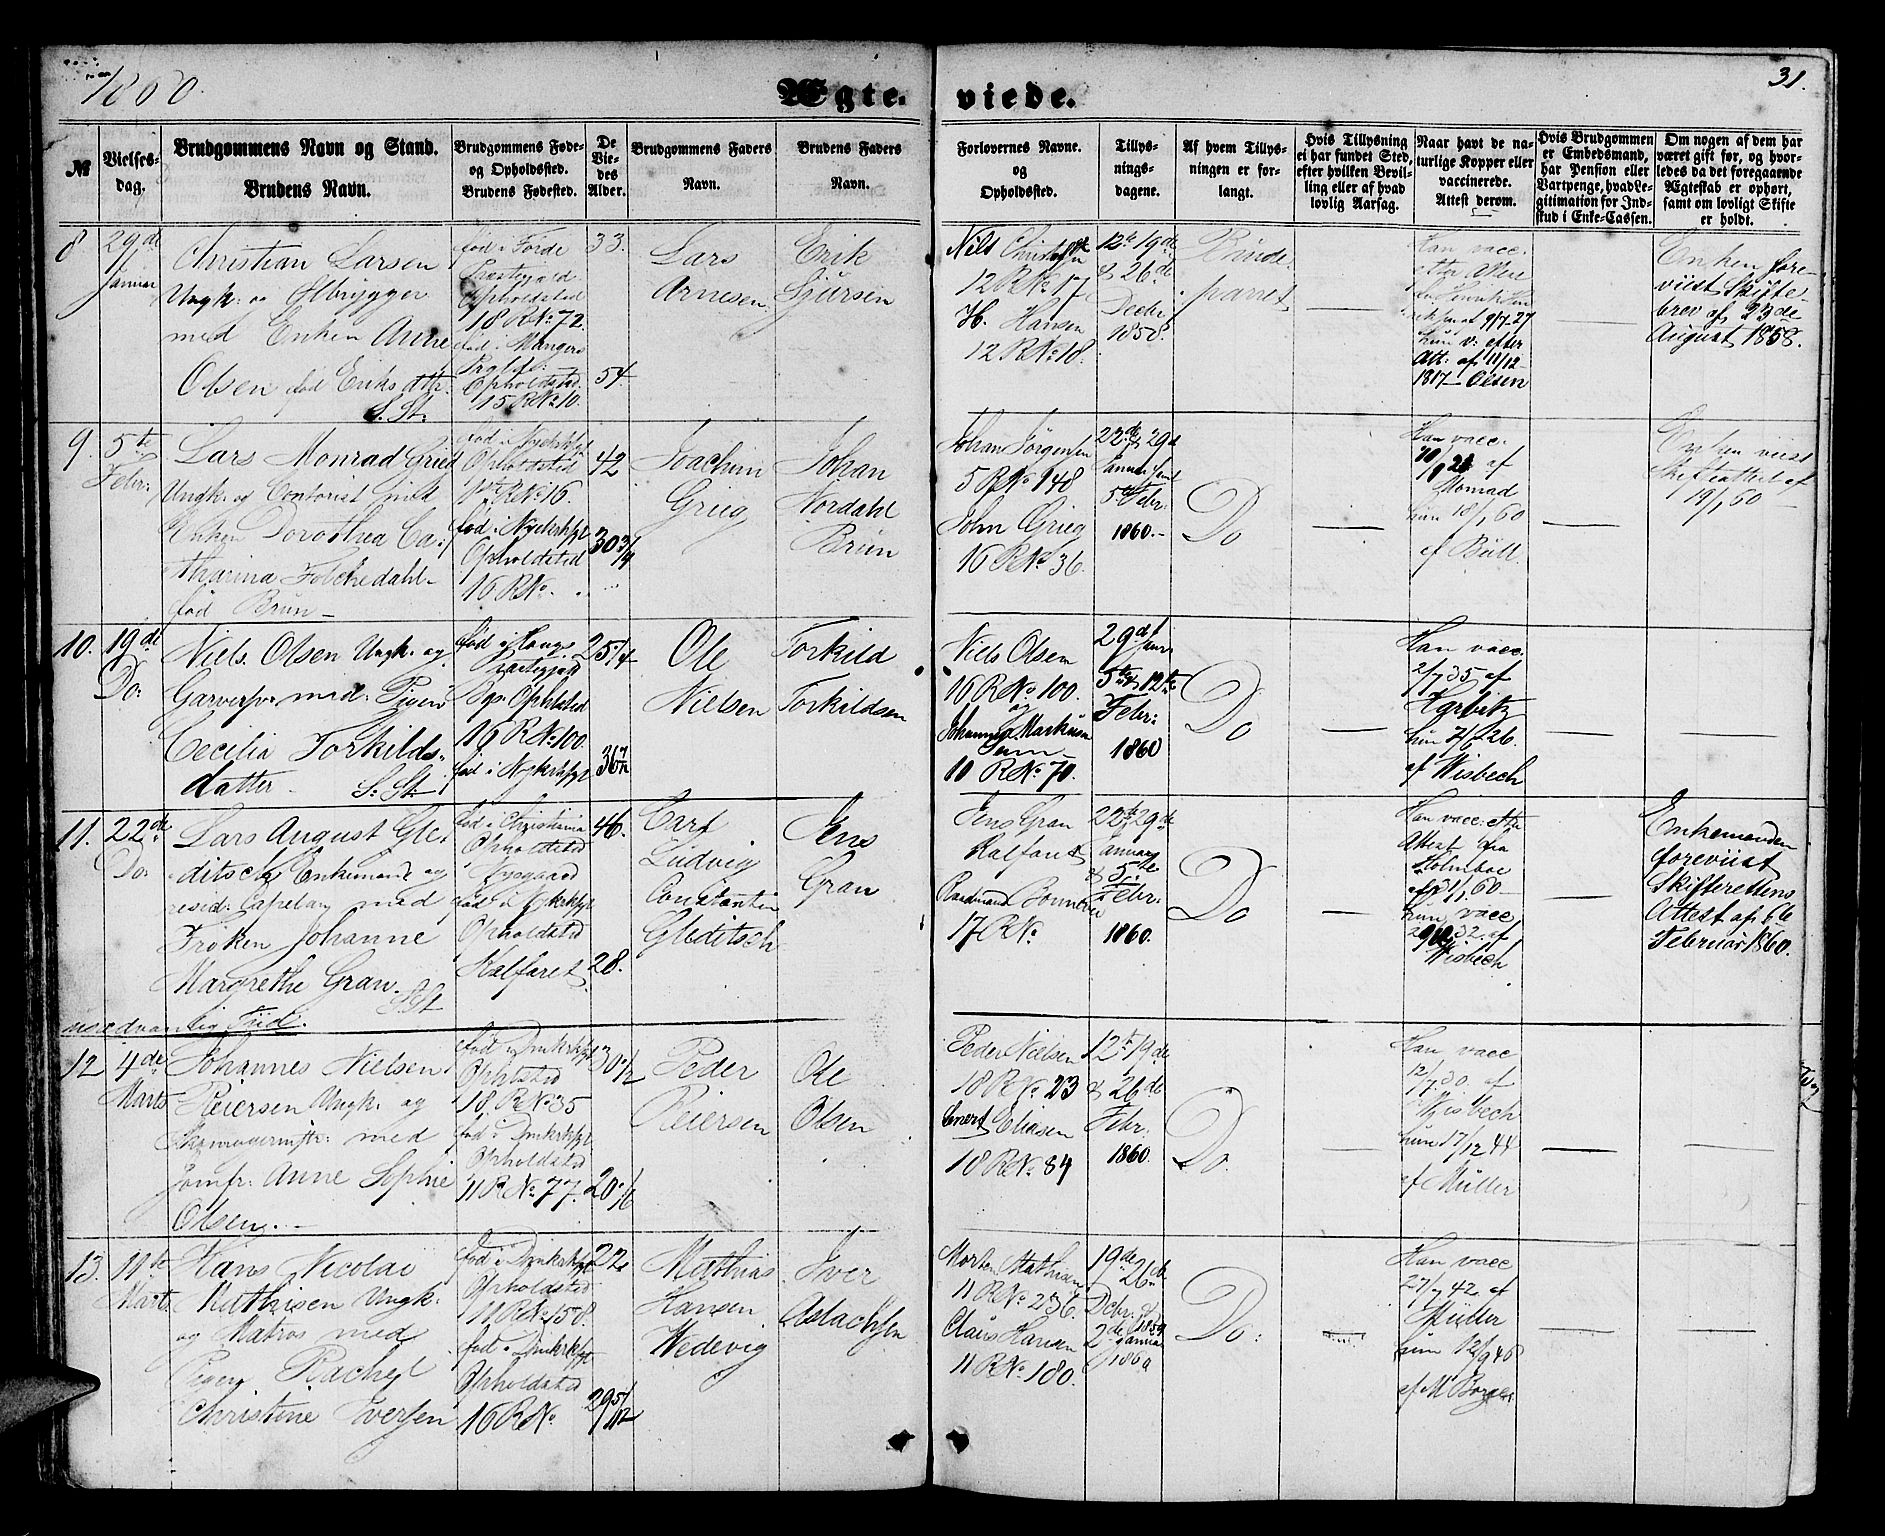 1860.
Ægte-
viede.
31.
№
Vielses-
dag.
Brudgommens Navn og Stand.
Brudens Navn.
Brudgommens Føde-
og Opholdssted.
Brudens Fødested.
De
Vie-
des
Alder.
Brudgommens Faders
Navn.
Brudens Faders
Navn.
Forlovernes Navne.
og
Opholdssted.
Tillys-
nings-
dagene.
Af hvem Tillys-
ningen er for-
langt.
Hvis Tillysning
ei har fundet Sted,
efter hvilken Bevil-
ling eller af hvad
lovlig Aarsag.
Naar havt de na-
turlige Kopper eller
vaccinerede.
Attest derom.
Hvis Brudgommen
er Embedsmand,
har Pension eller
Vartpenge, hvad Le-
gitimation for Ind-
skud i Enke-Cassen.
Om nogen af dem har
været gift før, og hvor-
ledes da det foregaaende
Ægteskab er ophørt,
samt om lovligt Skifte
er holdt.
8.
29de
Januar
Christian Larsen
Ungk: og Ølbrygger
med Enken Anne
Olsen fød Eriksdttr.
S. St.
fød i Førde
Præstegjeld
Opholdsted
18 R No 72.
fød i Manger
Opholdsted
15 R No 10.
33.
54
Lars
Arnesen
Erik
Sjursen
Nils
12 R No 17
H. Hansen
12 R No 18.
12te 19de
& 26de
Decbr
1858.
Brude-
parret
Han vacc.
efter Attest
hun v: efter
Att: af 11/12
1817 Olsen
Enken fore-
viist Skifte-
brev af 23de
August 1858.
9.
5te
Febr:
Lars Monrad Grieg
Ungk: og Contorist med
Enken Dorothea Ca-
tharina Folckedahl
fød Brun
fød i Nykrkspl
Opholdsted
R No 16.
fød i Nykrkspl
Opholdsted
16 R No
42
30 3/4
Joachim
Grieg
Johan
Nordahl
Brun
Johan Jørgensen
5 R No 148
John Grieg
16 R No 36.
22de & 29de
Januar samt
5te Febr.
1860.
Do
Han vacc.
af
Monrad
hun 18/1 60
af Bull.
Enken viist
Skifteattest af
19/1 60
10.
19de
Do:
Niels Olsen Ungk: og
Garversv: med: Pigen
Cecilia Torkilds-
datter
S. St.
fød i Haugs
Præstegjeld
Opholdsted
16 R No 100.
fød i Nykrkspl
25 1/4
Ole
Nielsen
Torkild
Torkildsen
Niels Olsen
16 R No 100.
og
Johannes Markusen
10 R No 70.
29de Janr
5te & 12te
Febr:
1860
Do
Han vacc.
2/7 35 af
hun 7/6 26.
af Wisbech
11.
22de
Do:
Lars August Gle-
ditsch Enkemand og
resid: Capelan med
Frøken Johanne
Margrethe Gran.
S. St
fød i Christiania
Opholdsted
fød i Nykrkspl
Opholdsted
Kalfaret
46.
28.
Carl
Ludvig
Constantin
Gleditsch
Jens
Gran
Jens Gran
Kalfaret
17 R No
22de 29de
Januar
& 5te
Febr:
1860.
Do
Han vacc: efter
Attest fra
Holmboe
af 31/1 60
hun vacc
32 af
Wisbech
Enkemanden
foreviist
Skifterettens
Attest af 6te
Februar 1860.
usædvanlig Tiid.
12
4de
Marts
Johannes Nielsen
Reiersen Ungk. og
Skomagermstr: med
Jomfr: Anne Sophie
Olsen.
fød i Dmkrkspl
Opholdsted
18 R No 35
fød i Dmkrkspl
Opholdsted
11 R No 77.
30 1/2
20 1/6
Peder
Reiersen
Ole
Olsen
Peder Nielsen
18 R No 23
Eliasen
18 R No 84
12te 19de
& 26de
Febr.
1860.
Do.
Han vacc
12/7 30 af
Wisbech
hun 17/12 44
af Müller
13.
11te
Marts
Hans Nicolai
Mathisen Ungk:
og Matros med
Pigen Rachel
Christine Iversen
fød i Dmkrkspl
Opholdsted
11 R No 158.
fød i Dmkrkspl
Opholdsted
16 R No
22
29 5/12
Mathias
Hansen
Wedevig
Iver
Aslachsen
Morten Mathisen
11 R No 236.
Claus Hansen
11 R No 180.
19de
& 26de
Dcbr. 1859
2de Januar
1860
Do:
Han vacc
27/7 42 af
Müller
hun 12/9 40
af M